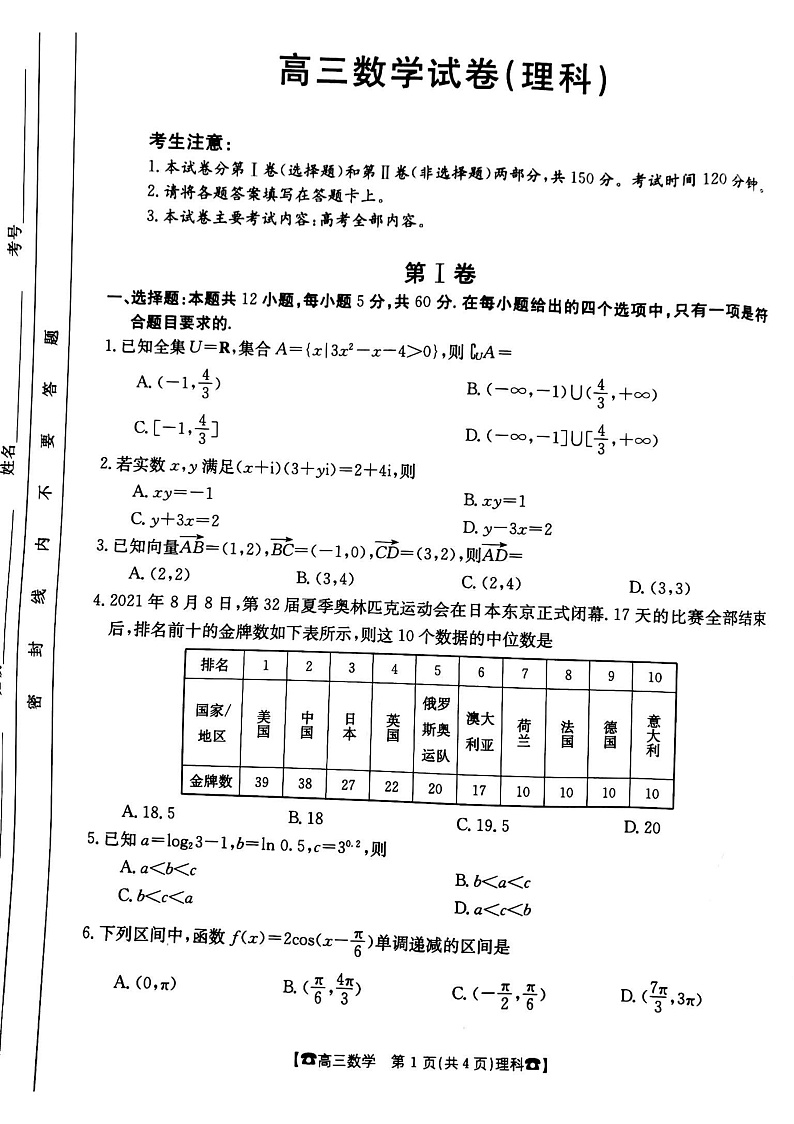 高三数学试卷(理科)
考生注意:
1.本试卷分第Ⅰ卷(选择题)和第Ⅱ卷(非选择题)两部分,共150分。考试时间120分钟。
2.请将各题答案填写在答题卡上。
3.本试卷主要考试内容:高考全部内容。
第Ⅰ卷
一、选择题:本题共12小题,每小题5分,共60分.在每小题给出的四个选项中,只有一项是符
合题目要求的.
1.已知全集U=R,集合A={x|3x²-x-4>0},则∁UA=
A.(-1,4/3) B.(-∞,-1)∪(4/3,+∞)
C.[-1,4/3] D.(-∞,-1]∪[4/3,+∞)
2.若实数x,y满足(x+i)(3+yi)=2+4i,则
A.xy=-1 B.xy=1
C.y+3x=2 D.y-3x=2
3.已知向量AB→=(1,2),BC→=(-1,0),CD→=(3,2),则AD→=
A.(2,2) B.(3,4) C.(2,4) D.(3,3)
4.2021年8月8日,第32届夏季奥林匹克运动会在日本东京正式闭幕.17天的比赛全部结束
后,排名前十的金牌数如下表所示,则这10个数据的中位数是
排名 1 2 3 4 5 6 7 8 9 10
国家/地区 美国 中国 日本 英国 俄罗斯奥运队 澳大利亚 荷兰 法国 德国 意大利
金牌数 39 38 27 22 20 17 10 10 10 10
A.18.5 B.18 C.19.5 D.20
5.已知a=log₂3-1,b=ln 0.5,c=3^0.2,则
A.a<b<c B.b<a<c
C.b<c<a D.a<c<b
6.下列区间中,函数f(x)=2cos(x-π/6)单调递减的区间是
A.(0,π) B.(π/6,4π/3) C.(-π/2,π/6) D.(7π/3,3π)
【☎高三数学 第1页(共4页)理科☎】
考号
姓名
密封线内不要答题